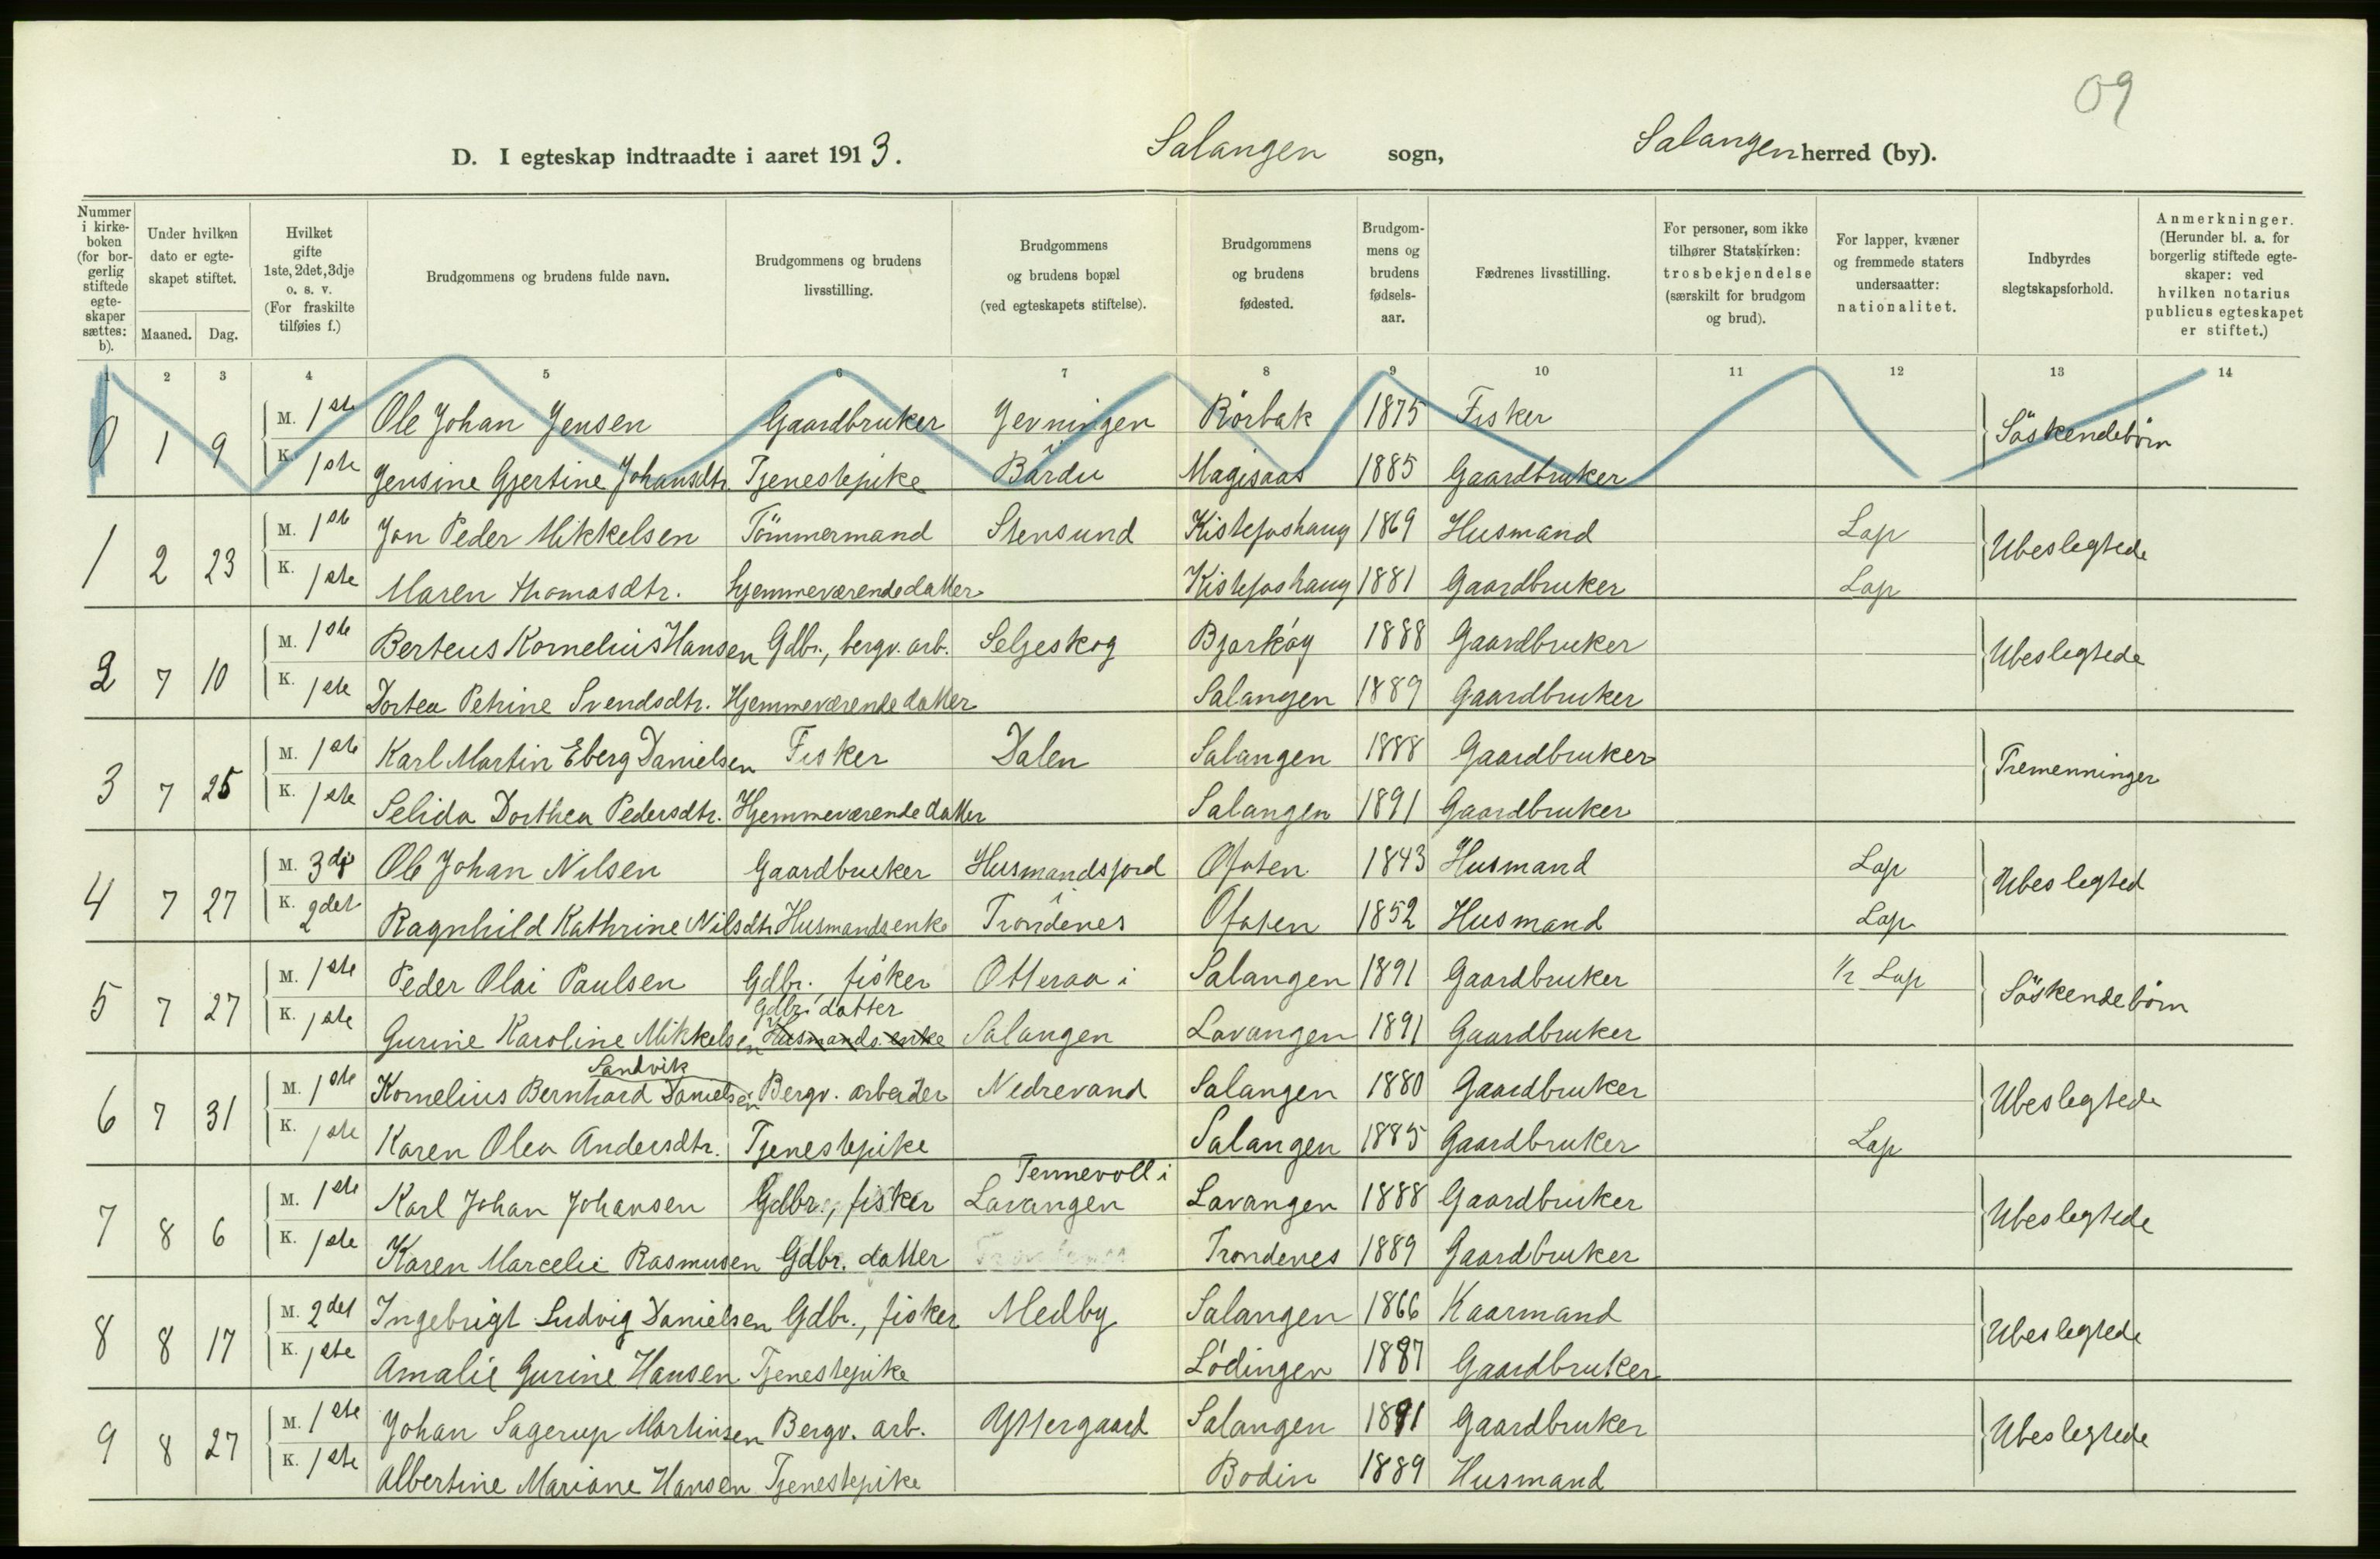 09
D. I egteskap indtraadte i aaret 1913. Salangen sogn, Salangen herred (by).
Nummer i kirkeboken (for borgerlig stiftede egteskaper sættes: b).
Under hvilken dato er egteskapet stiftet.
Maaned. Dag.
Hvilket gifte 1ste, 2det, 3dje o. s. v. (For fraskilte tilføies f.)
Brudgommens og brudens fulde navn.
Brudgommens og brudens livsstilling.
Brudgommens og brudens bopæl (ved egteskapets stiftelse).
Brudgommens og brudens fødested.
Brudgommens og brudens fødselsaar.
Fædrenes livsstilling.
For personer, som ikke tilhører Statskirken: trosbekjendelse (særskilt for brudgom og brud).
For lapper, kvæner og fremmede staters undersaatter: nationalitet.
Indbyrdes slegtskapsforhold.
Anmerkninger. (Herunder bl. a. for borgerlig stiftede egteskaper: ved hvilken notarius publicus egteskapet er stiftet.)
1 2 3 4 5 6 7 8 9 10 11 12 13 14
0 1 9 M. 1ste Ole Johan Jensen Gaardbruker Jevningen i Rörbak 1875 Fisker Söskendebörn
K. 1ste Jensine Gjertine Johansdtr. Tjenestepike Bardu Magisaas 1885 Gaardbruker
1 2 23 M. 1ste Jon Peder Mikkelsen Tömmermand Stensund Kistefoshaug 1869 Husmand Lap Ubeslegtede
K. 1ste Maren Thomasdtr. hjemmeværende datter Kistefoshaug 1881 Gaardbruker Lap
2 7 10 M. 1ste Berteus Kornelius Hansen Gdbr., bergv. arb. Seljeskog Bjarköy 1888 Gaardbruker Ubeslegtede
K. 1ste Dortea Petrine Svendsdtr. Hjemmeværende datter Salangen 1889 Gaardbruker
3 7 25 M. 1ste Karl Martin Eberg Danielsen Fisker Dalen Salangen 1888 Gaardbruker Tremenninger
K. 1ste Selida Dorthea Pedersdtr. Hjemmeværende datter Salangen 1891 Gaardbruker
4 7 27 M. 3dje Ole Johan Nilsen Gaardbruker Husmandsjord i Ofoten 1843 Husmand Lap Ubeslegted
K. 2det Ragnhild Kathrine Nilsdtr. Husmandsenke Trondenes Ofoten 1852 Husmand Lap
5 7 27 M. 1ste Peder Olai Paulsen Gdbr. fisker Otteraa i Salangen 1891 Gaardbruker 1/2 Lap Söskendebörn
Gdbr. datter
K. 1ste Gurine Karoline Mikkelsen Husmands enke Salangen Lavangen 1891 Gaardbruker
Sandvik
6 7 31 M. 1ste Kornelius Bernhard Danielsen Bergv. arbeider Nedrevand Salangen 1880 Gaardbruker Ubeslegtede
K. 1ste Karen Olea Andersdtr. Tjenestepike Salangen 1885 Gaardbruker Lap
Tennevoll i
7 8 6 M. 1ste Karl Johan Johansen Gdbr., fisker Lavangen Lavangen 1888 Gaardbruker Ubeslegtede
K. 1ste Karen Marcelie Rasmusen Gdbr. datter Trondenes 1889 Gaardbruker
8 8 17 M. 2det Ingebrigt Ludvig Danielsen Gdbr., fisker Medby Salangen 1866 Kaarmand Ubeslegtede
K. 1ste Amalie Gurine Hansen Tjenestepike Lödingen 1887 Gaardbruker
9 8 27 M. 1ste Johan Sagerup Martinsen Bergv. arb. Yttergaard Salangen 1891 Gaardbruker Ubeslegtede
K. 1ste Albertine Mariane Hansen Tjenestepike Bodin 1889 Husmand